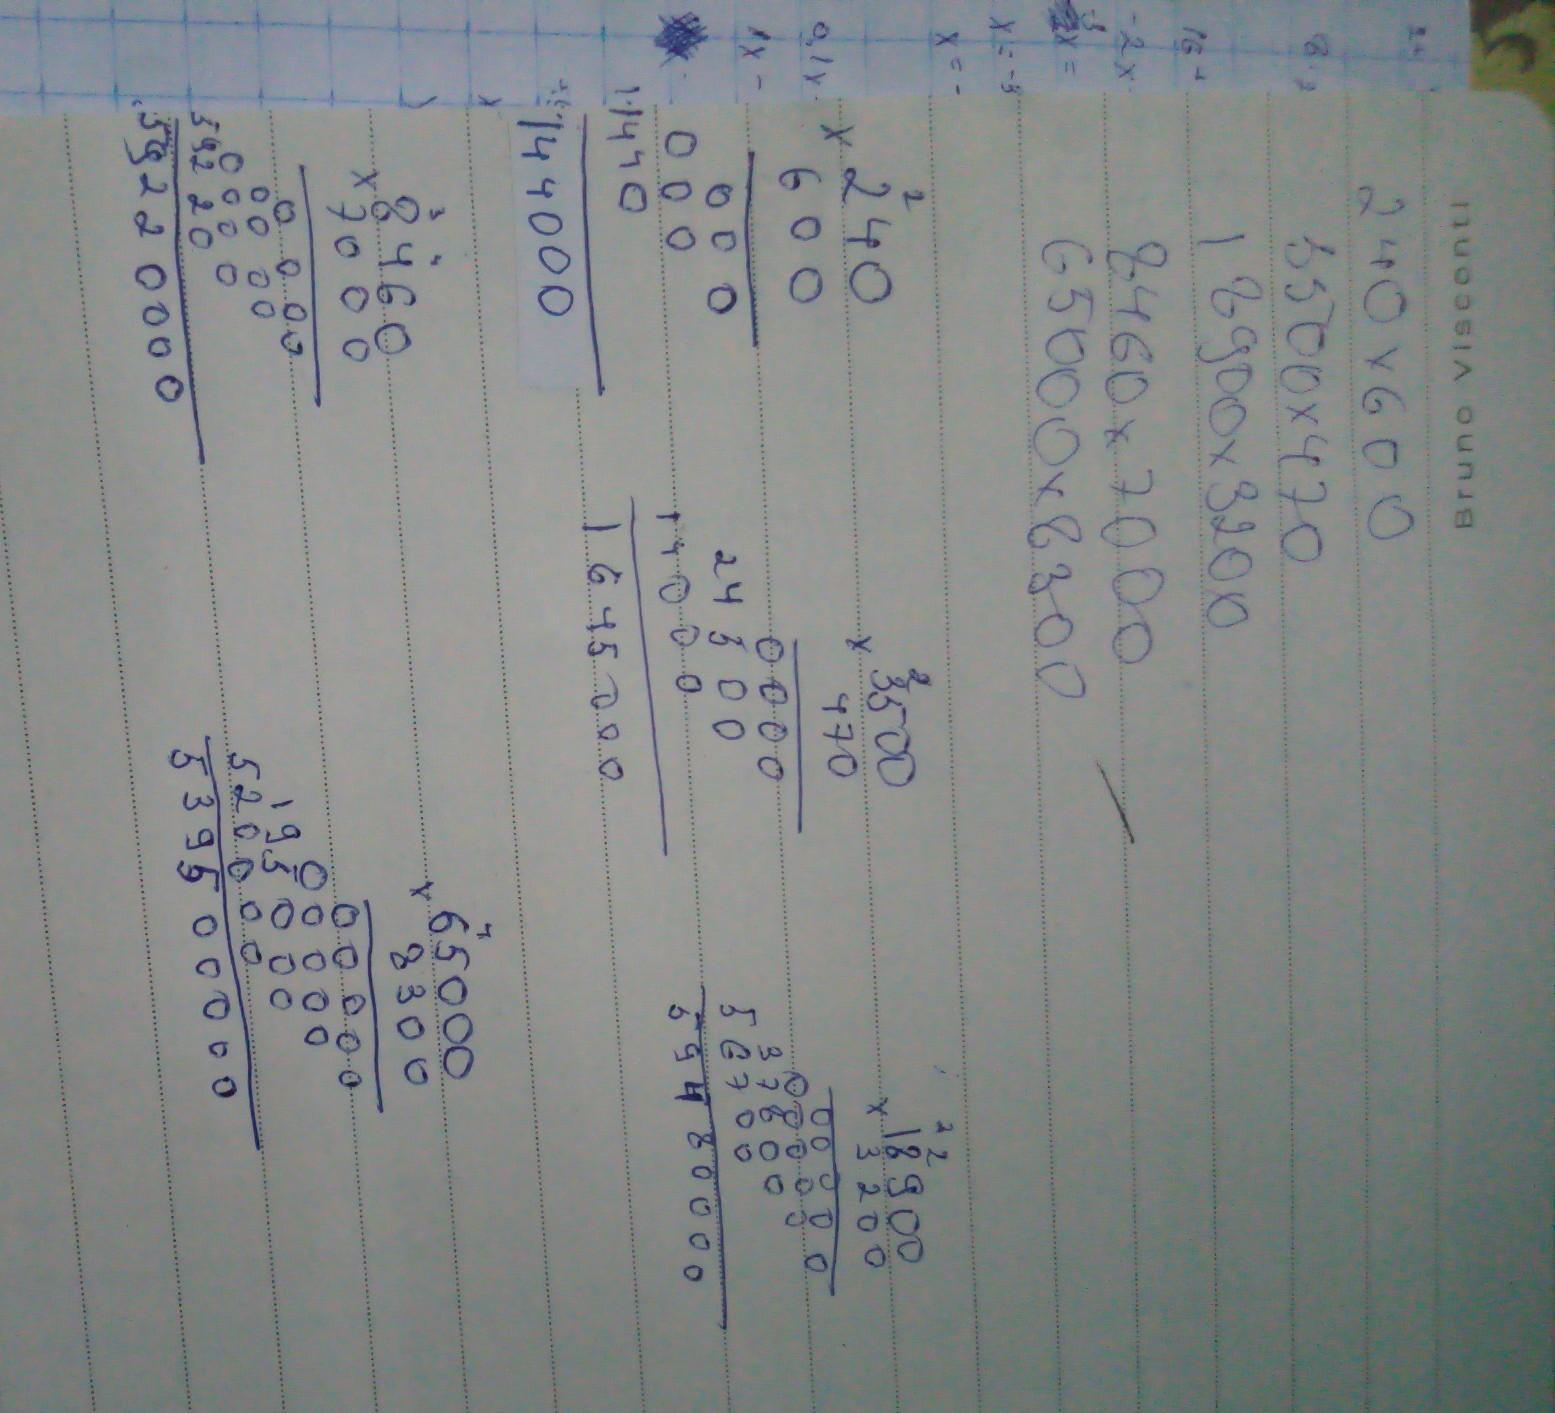 Bruno Visconti
240x600
3500x470
18900x3200
8460x7000
65000x8300
2
x 240
600
000
000
1440
144000
2
x 3500
470
0000
24500
14000
1645000
2 2
x 18900
3200
00000
00000
37800
56700
59480000
3 4
x 8460
7000
0000
0000
0000
59220
59220000
4
x 65000
8300
00000
00000
195000
520000
539500000